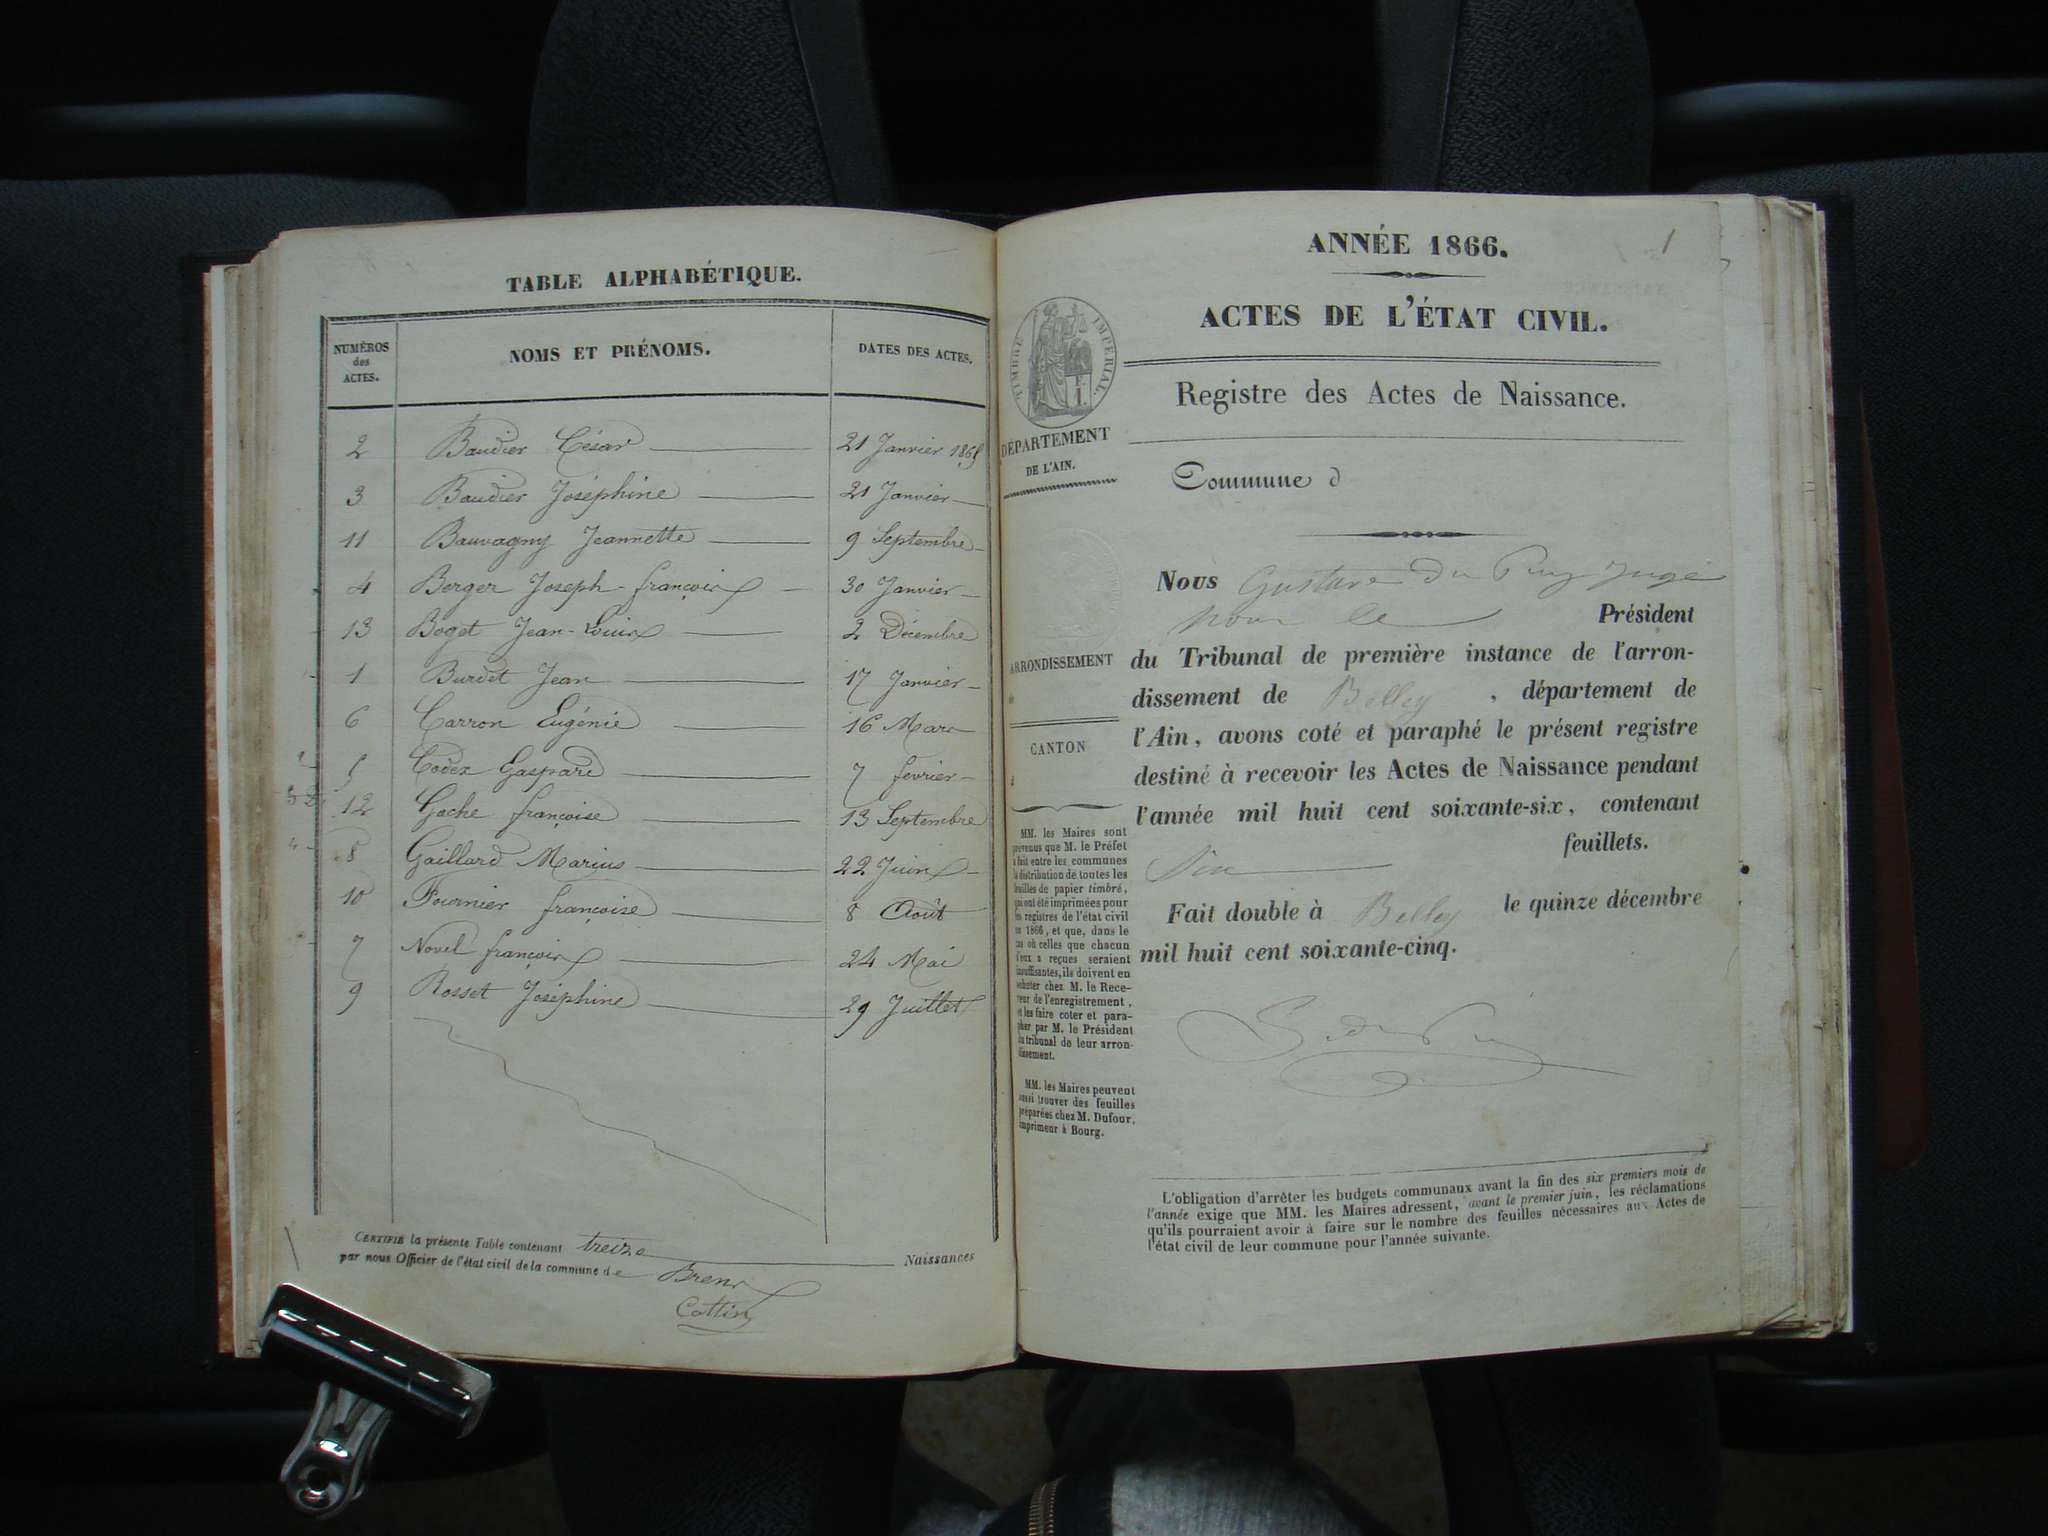 TABLE ALPHABÉTIQUE.
NUMÉROS
des
ACTES.
NOMS ET PRÉNOMS.
DATES DES ACTES.
2 Baudier César 21 Janvier 1865
3 Baudier Joséphine 21 Janvier
11 Bauvagny Jeannette 9 Septembre
4 Berger Joseph-françois 30 Janvier
13 Boget Jean-Louis 2 Décembre
1 Burdet Jean 17 Janvier
6 Carron Eugénie 16 Mars
5 Codex Gaspard 7 fevrier
12 Gache françoise 13 Septembre
8 Gaillard Marius 22 Juin
10 Fournier françoise 8 Août
7 Novel françois 24 Mai
9 Rosset Joséphine 29 Juillet
CERTIFIÉ la présente Table contenant treize Naissances
par nous Officier de l'état civil de la commune de Brens
Cottin
1
ANNÉE 1866.
ACTES DE L'ÉTAT CIVIL.
Registre des Actes de Naissance.
TIMBRE IMPÉRIAL
DÉPARTEMENT
DE L'AIN.
ARRONDISSEMENT
CANTON
MM. les Maires sont
prévenus que M. le Préfet
a fait entre les communes
la distribution de toutes les
feuilles de papier timbré,
qui ont été imprimées pour
les registres de l'état civil
en 1866, et que, dans le
cas où celles que chacun
d'eux a reçues seraient
insuffisantes, ils doivent en
acheter chez M. le Rece-
veur de l'enregistrement,
et les faire coter et para-
pher par M. le Président
du tribunal de leur arron-
dissement.
MM. les Maires peuvent
aussi trouver des feuilles
préparées chez M. Dufour,
imprimeur à Bourg.
Commune d
Nous Gustave Du Puy Juge
pour le Président
du Tribunal de première instance de l'arron-
dissement de Belley, département de
l'Ain, avons coté et paraphé le présent registre
destiné à recevoir les Actes de Naissance pendant
l'année mil huit cent soixante-six, contenant
feuillets.
Fait double à Belley le quinze décembre
mil huit cent soixante-cinq.
L'obligation d'arrêter les budgets communaux avant la fin des six premiers mois de
l'année exige que MM. les Maires adressent, avant le premier juin, les réclamations
qu'ils pourraient avoir à faire sur le nombre des feuilles nécessaires aux Actes de
l'état civil de leur commune pour l'année suivante.